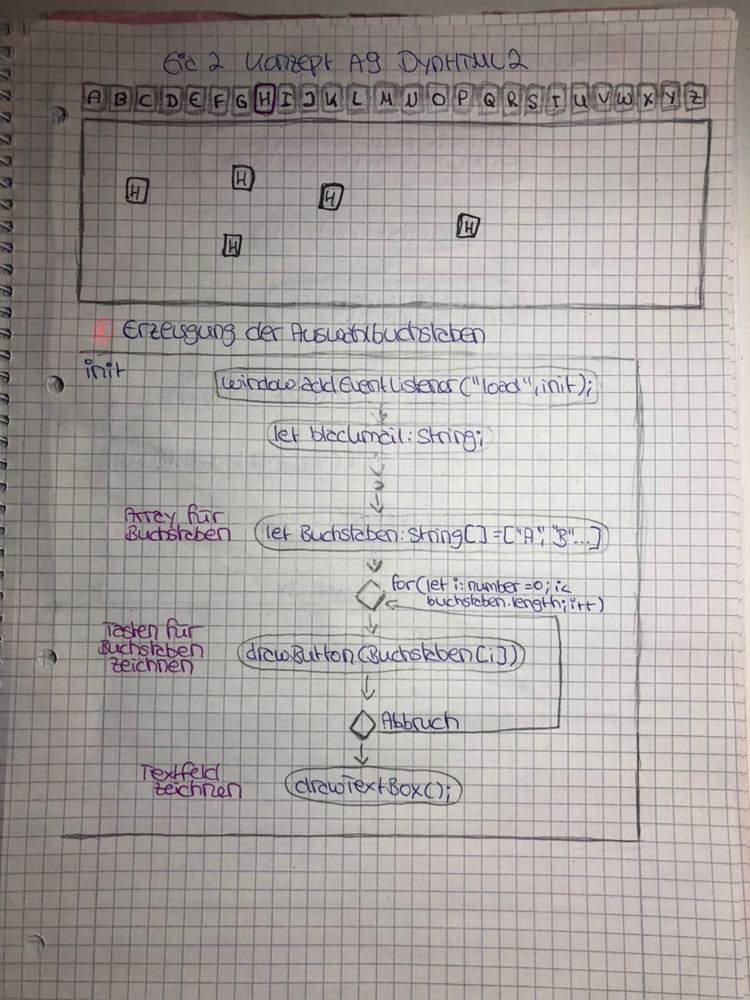 Eia 2 Konzept A9 DynHTML 2
A B C D E F G H I J K L M N O P Q R S T U V W X Y Z
H H H H H
1 Erzeugung der Auswahlbuchstaben
init
window.addEventListener("load", init);
let blackmail: String;
Array für
Buchstaben
let Buchstaben: String[] = ["A", "B"...]
for(let i: number = 0; i<
buchstaben.length; i++)
Tasten für
Buchstaben
zeichnen
drawButton(Buchstaben[i])
Abbruch
Textfeld
zeichnen
drawTextBox();